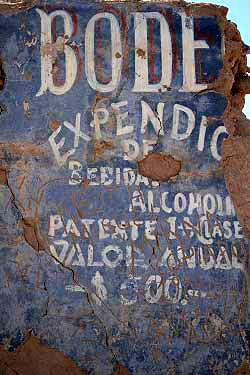 BODE
EXPENDIO
DE
BEBIDAS
ALCOHOLI
PATENTE 1A CLASE
VALOR ANUAL
$ 300.-